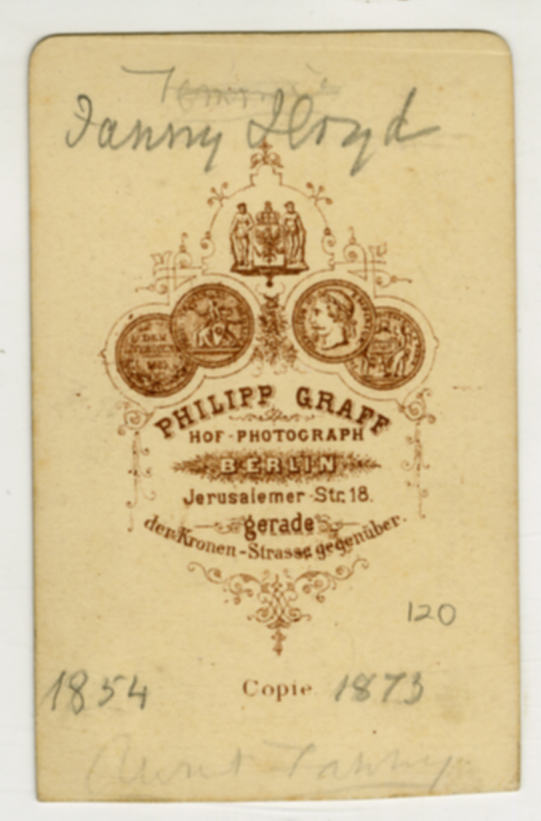 Fanny Lloyd
PHILIPP GRAFF
HOF-PHOTOGRAPH
BERLIN
Jerusalemer-Str. 18.
gerade
der Kronen-Strasse gegenüber.
120
1854 Copie 1873
Aunt Fanny